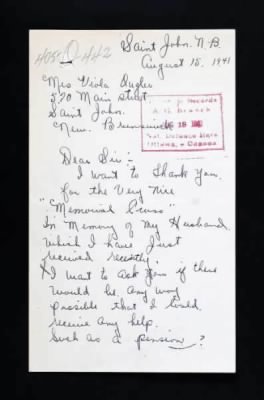 Saint John. N.B.
August 15. 1941
Mrs Viola
Main Street
Saint John.
New. Brunswick
Records
Nat. Defence Hqrs
Ottawa, - Canada
Dear Sir:-
I want to Thank You.
for the Very Nice
"Memorial Cross"
In Memory of My Husband.
Which I have Just
received recently.
I want to ask You if there
would be. Any way
possible that I could.
receive Any help.
Such as a pension?